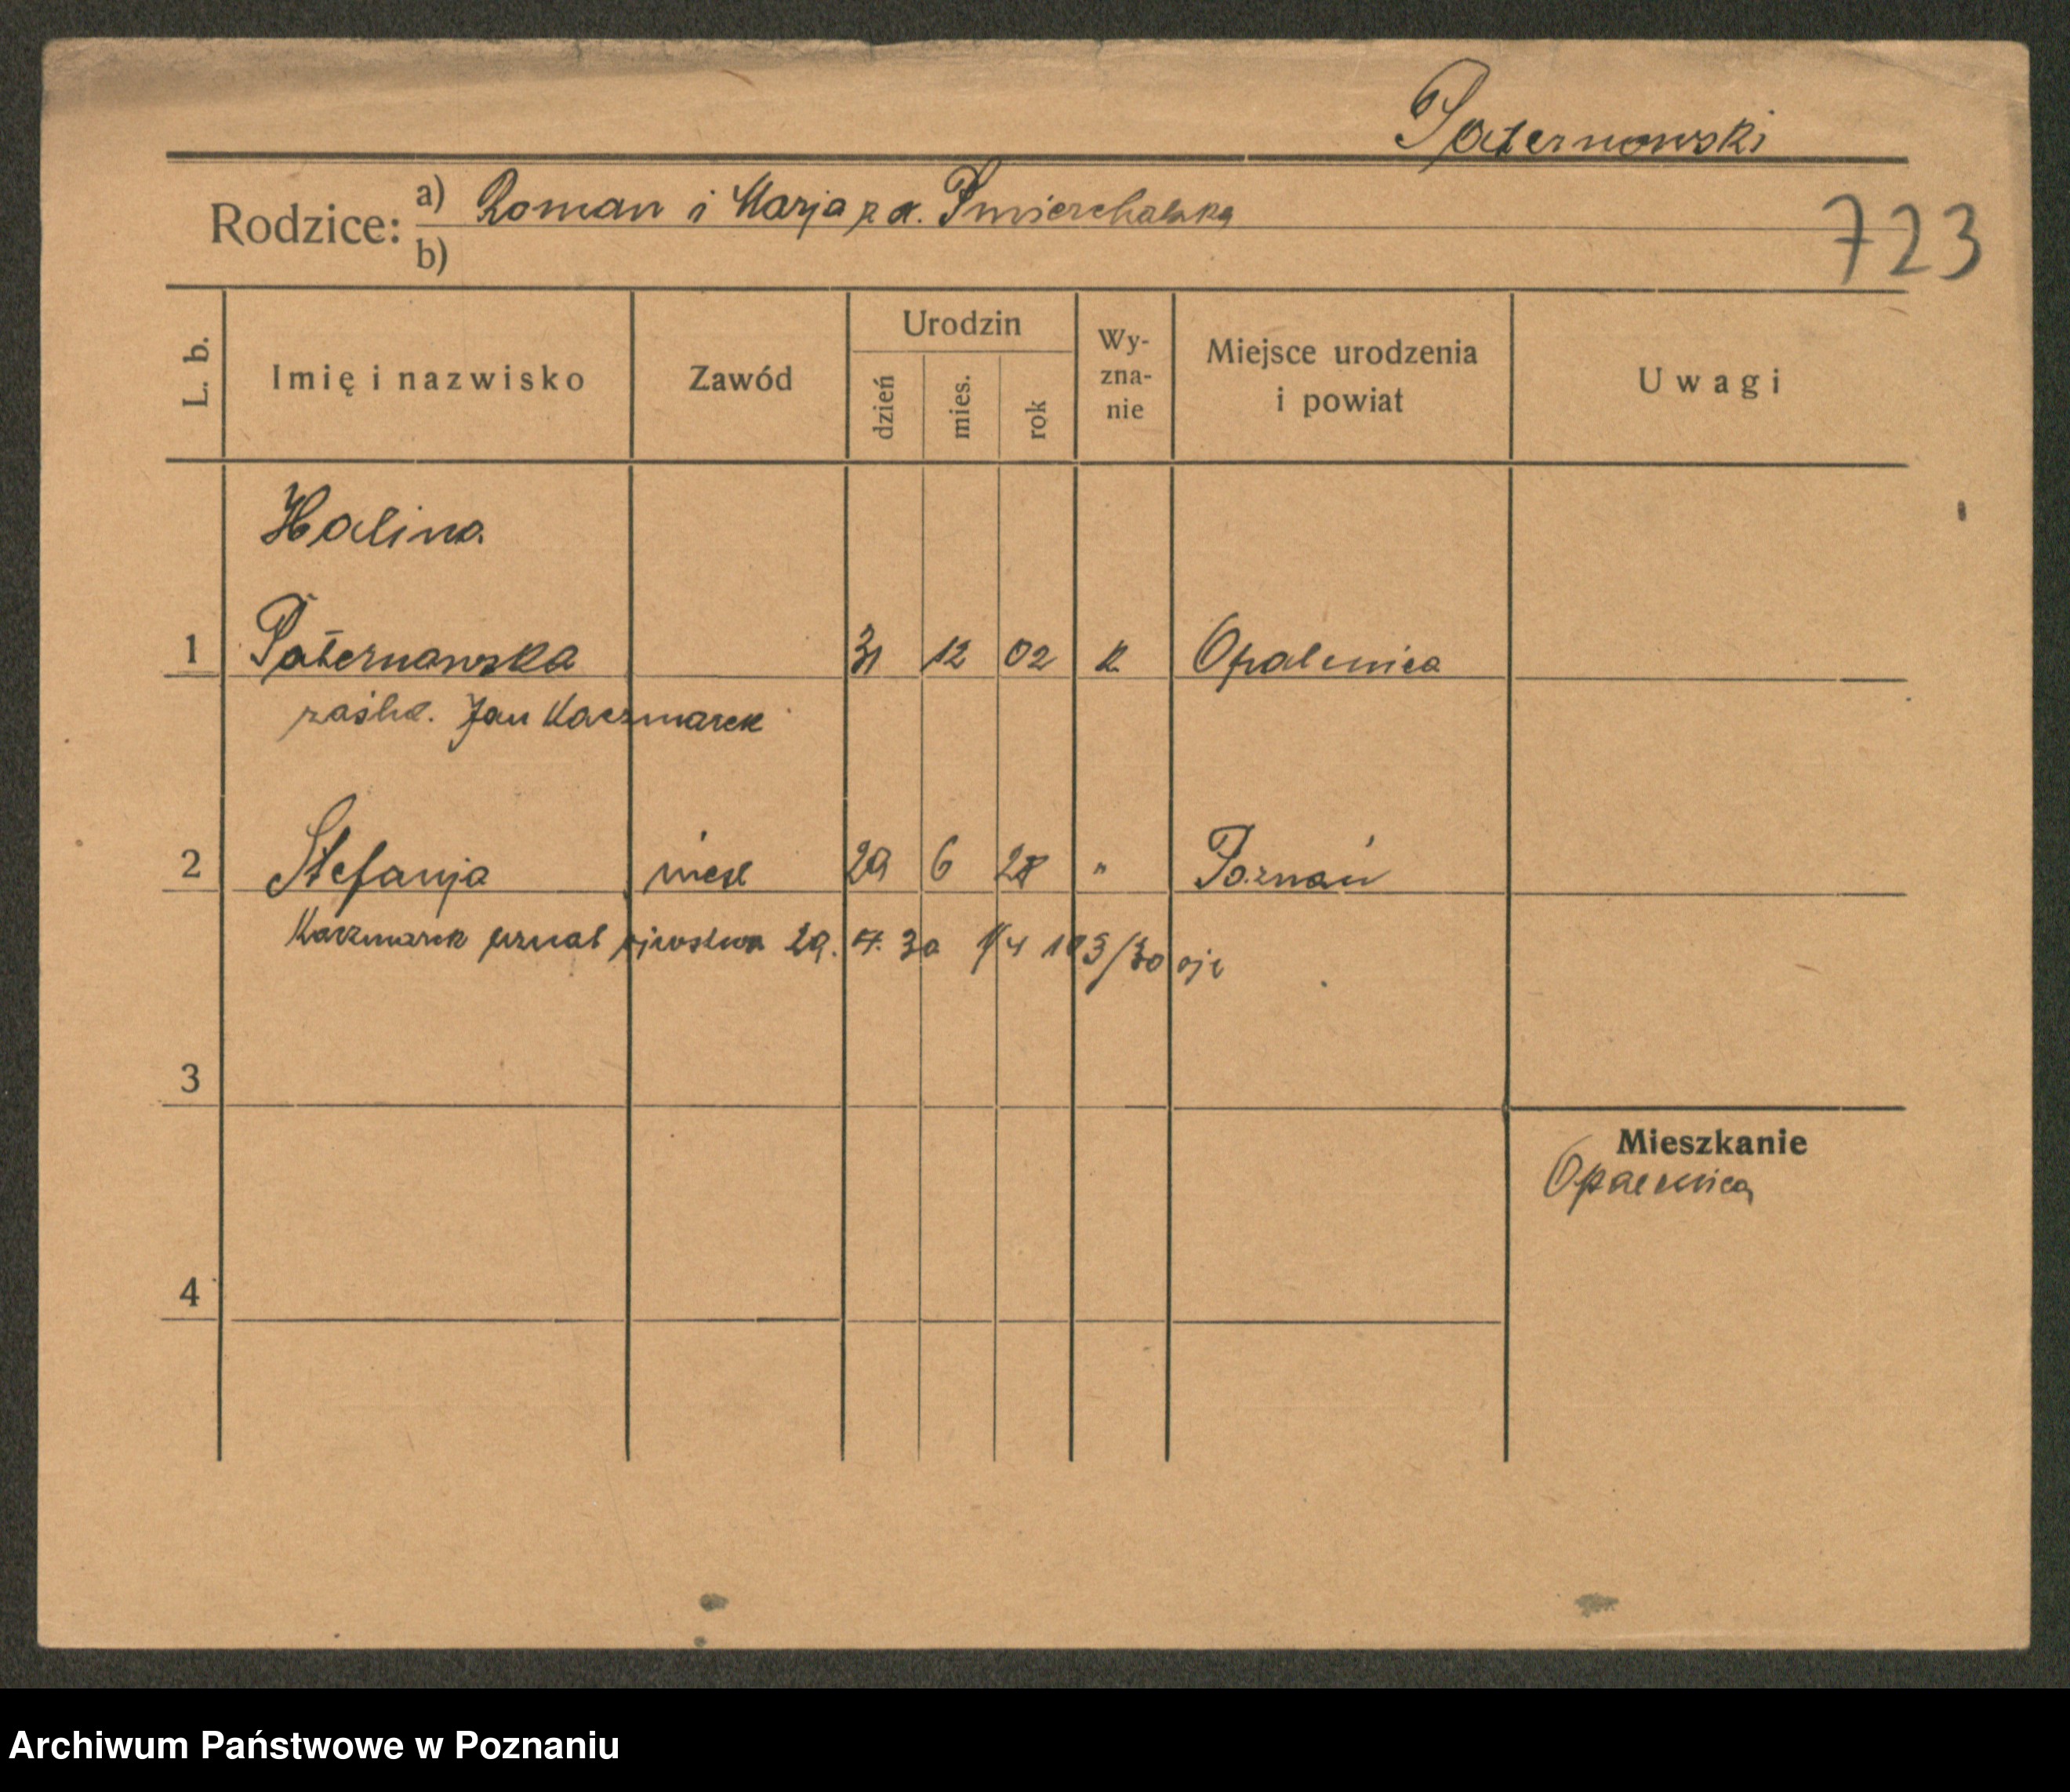 Paternowski
Rodzice: a) Roman i Marja z d. Śmierzchalska
b)
723
L. b. Imię i nazwisko Zawód Urodzin dzień mies. rok Wy-zna-nie Miejsce urodzenia i powiat Uwagi
Halina
1 Paternowska 31 12 02 k Opalenica
zaślub. Jan Kaczmarek
2 Stefanja 29 6 28 " Poznań
Kaczmarek uznał ojcostwo 29. 4. 30 103/30
3
Mieszkanie
Opalenica
4
Archiwum Państwowe w Poznaniu